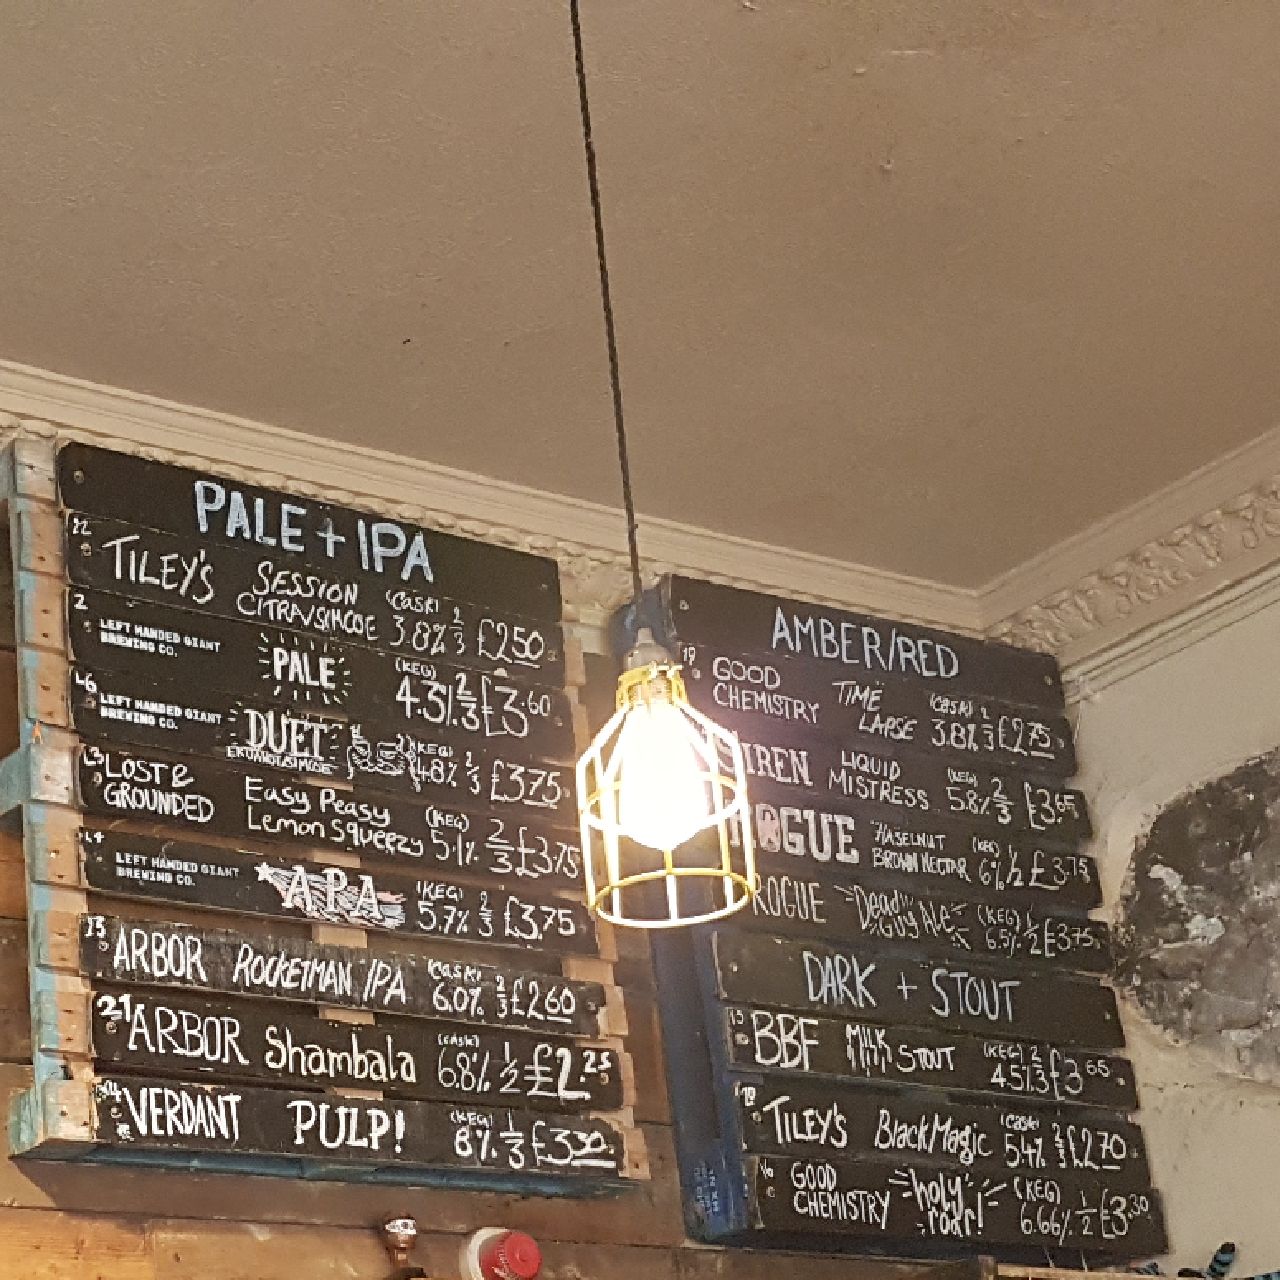 PALE + IPA
22
TILEY'S SESSION (CASK) 2/3 £2.50
CITRA/SIMCOE 3.8%
2
LEFT HANDED GIANT
BREWING CO.
PALE (KEG) 4.3% 2/3 £3.60
LEFT HANDED GIANT
BREWING CO.
DUET (KEG) 4.8% 2/3 £3.75
LOST & GROUNDED
Easy Peasy
Lemon Squeezy (KEG) 5.1% 2/3 £3.75
LEFT HANDED GIANT
BREWING CO.
APA (KEG) 5.7% 2/3 £3.75
ARBOR ROCKETMAN IPA (CASK) 6.0% 2/3 £2.60
21 ARBOR Shambala (CASK) 6.8% 1/2 £2.25
VERDANT PULP! (KEG) 8% 1/3 £3.30
AMBER/RED
19
GOOD CHEMISTRY
TIME LAPSE (CASK) 3.8% 2/3 £2.75
SIREN LIQUID MISTRESS (KEG) 5.8% 2/3 £3.65
ROGUE HASELNUT
BROWN NECTAR (KEG) 6% 1/2 £3.75
ROGUE Dead Guy Ale (KEG) 6.5% 1/2 £3.75
DARK + STOUT
BBF MILK STOUT (KEG) 4.5% 2/3 £3.65
TILEY'S Black Magic (CASK) 5.4% 2/3 £2.70
GOOD CHEMISTRY
holy roar! (KEG) 6.66% 1/2 £3.30